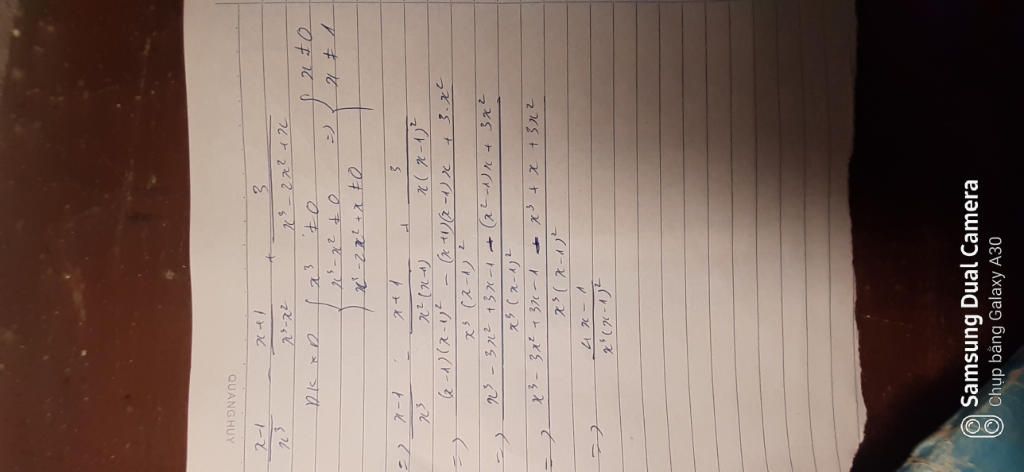 QUANG HUY
x-1/x³ - x+1/x³-x² + 3/x³-2x²+x
ĐKXĐ { x³ ≠ 0
x³-x² ≠ 0 => { x ≠ 0
x³-2x²+x ≠ 0 x ≠ 1
=> x-1/x³ - x+1/x²(x-1) + 3/x(x-1)²
=> (x-1)(x-1)² - (x+1)(x-1)x + 3.x²/x³(x-1)²
=> x³-3x²+3x-1-(x²-1)x+3x²/x³(x-1)²
=> x³-3x²+3x-1-x³+x+3x²/x³(x-1)²
=> 4x-1/x³(x-1)²
Samsung Dual Camera
Chụp bằng Galaxy A30